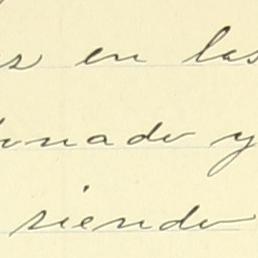 en las
onado y
siendo